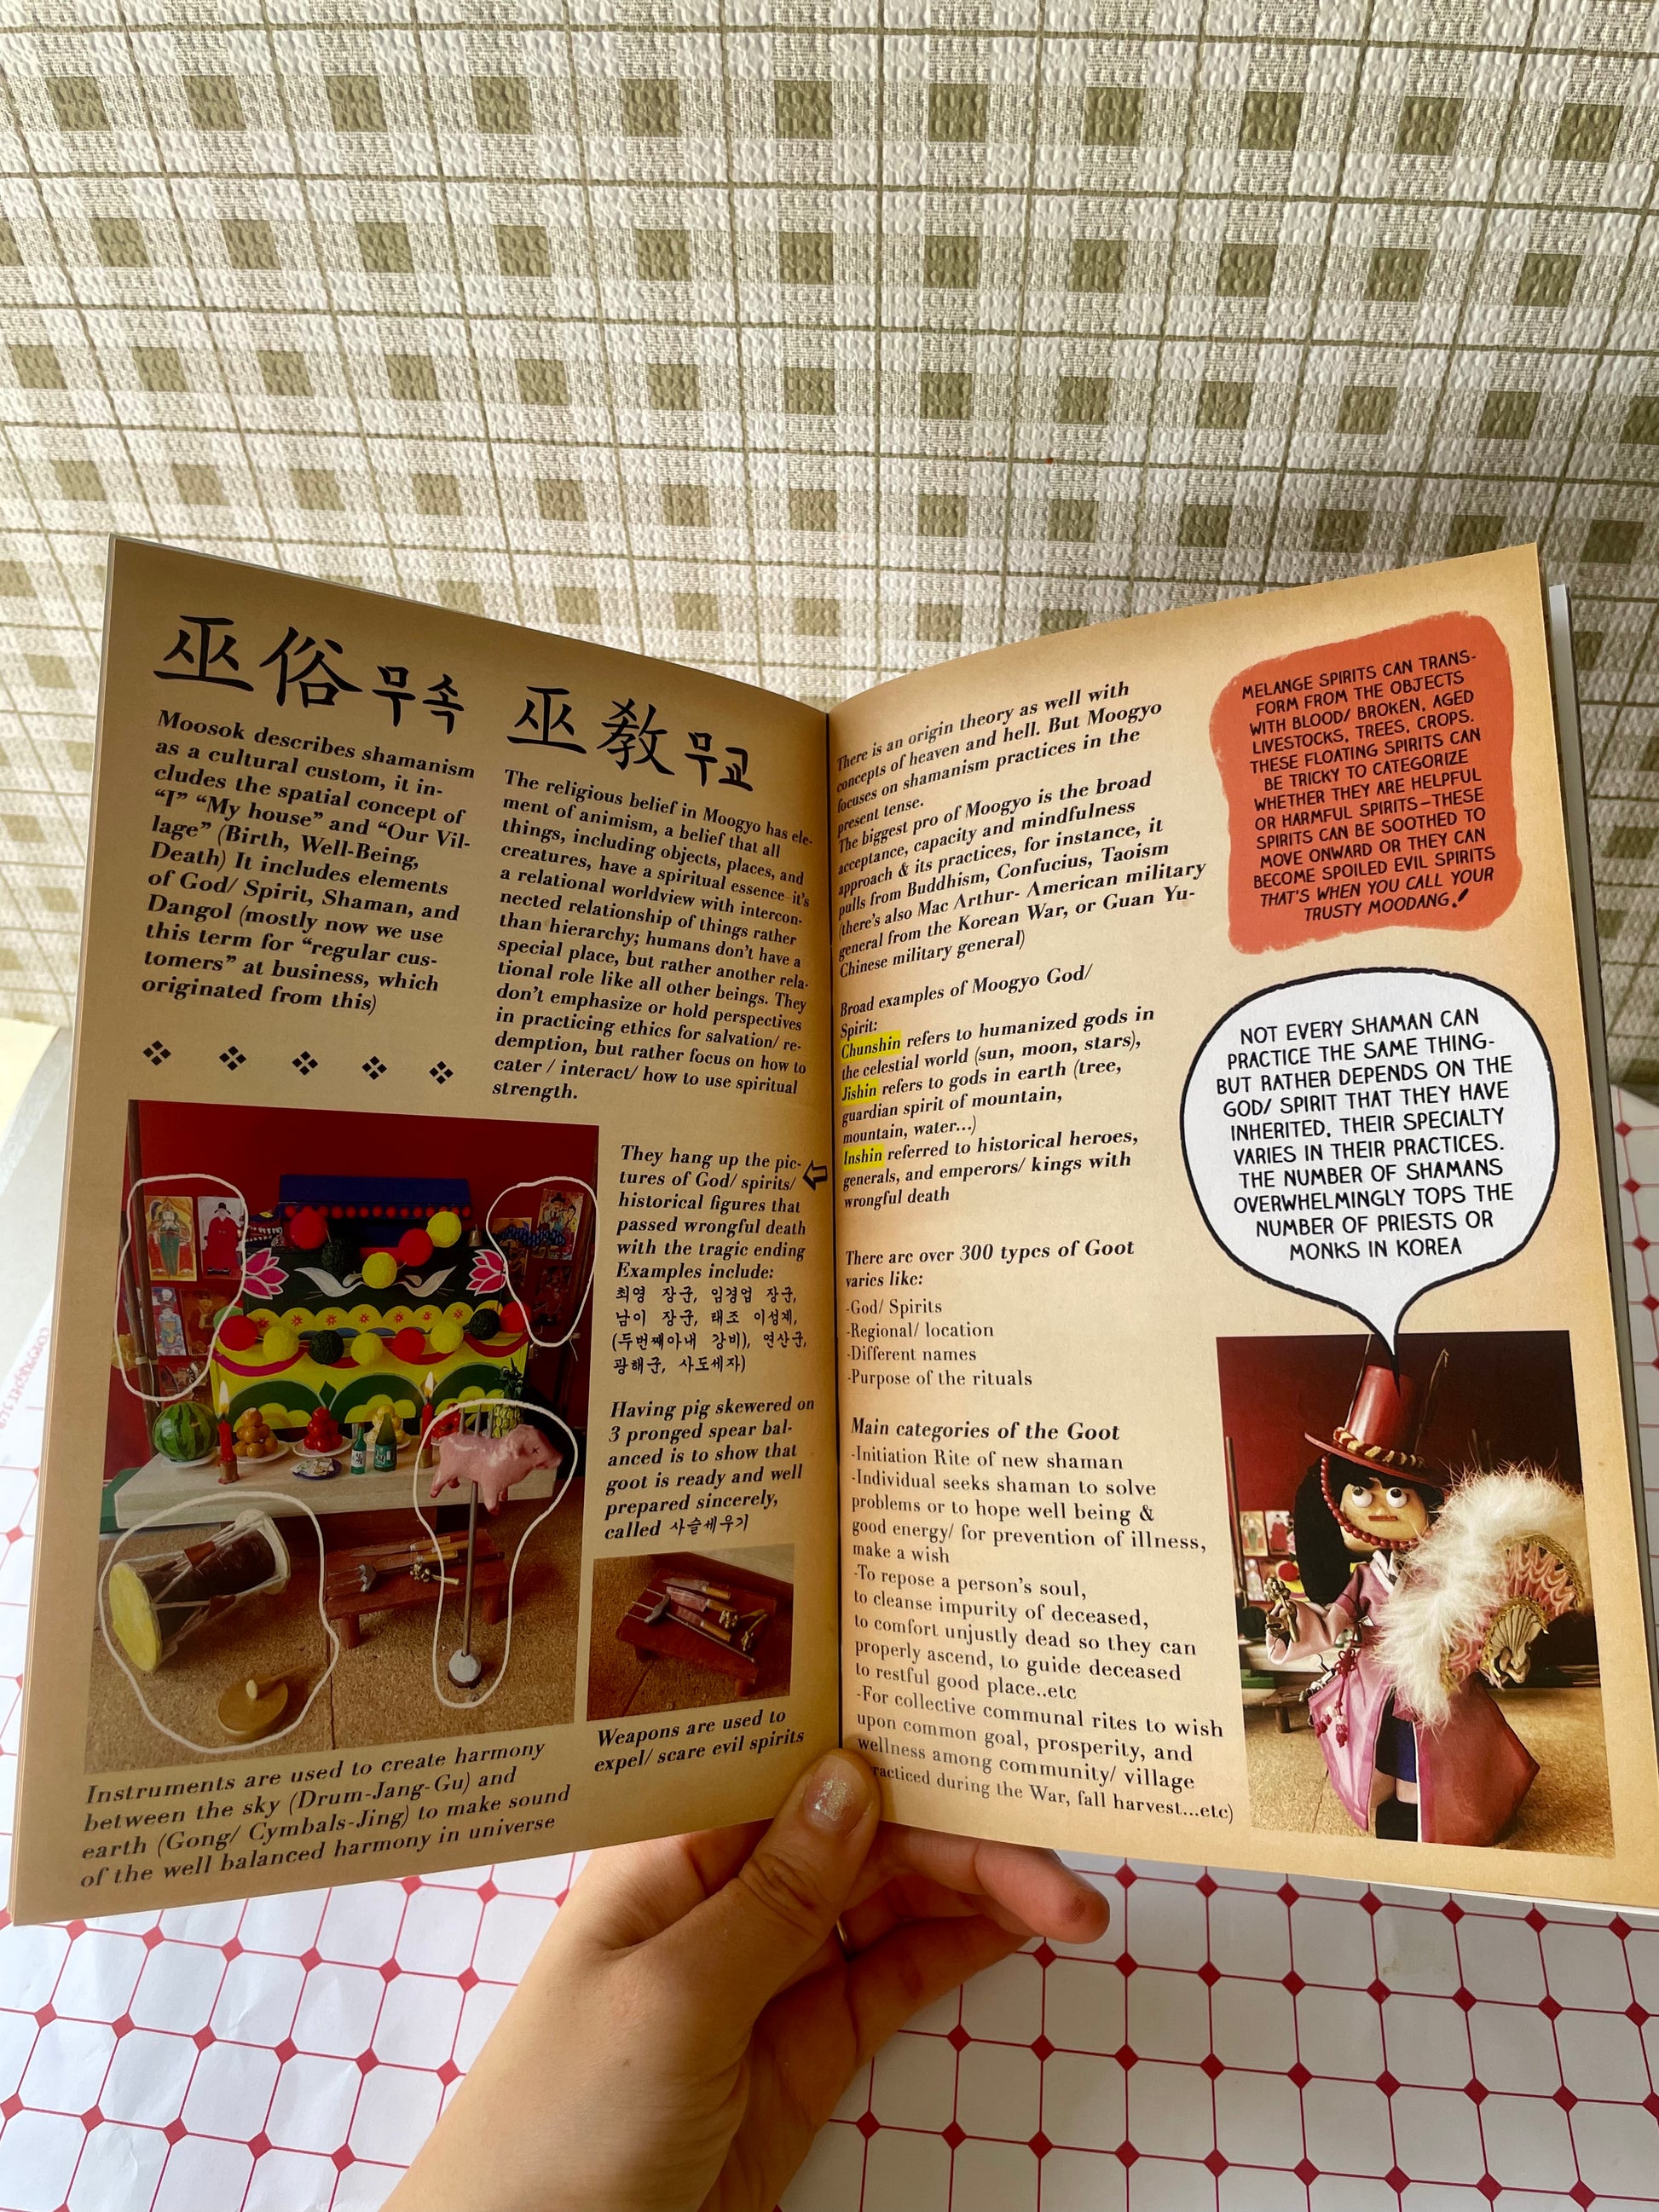 巫俗무속
Moosok describes shamanism
as a cultural custom, it in-
cludes the spatial concept of
“I” “My house” and “Our Vil-
lage” (Birth, Well-Being,
Death) It includes elements
of God/ Spirit, Shaman, and
Dangol (mostly now we use
this term for “regular cus-
tomers” at business, which
originated from this)
巫敎무교
The religious belief in Moogyo has ele-
ment of animism, a belief that all
things, including objects, places, and
creatures, have a spiritual essence-it's
a relational worldview with intercon-
nected relationship of things rather
than hierarchy; humans don't have a
special place, but rather another rela-
tional role like all other beings. They
don't emphasize or hold perspectives
in practicing ethics for salvation/ re-
demption, but rather focus on how to
cater / interact/ how to use spiritual
strength.
They hang up the pic-
tures of God/ spirits/
historical figures that
passed wrongful death
with the tragic ending
Examples include:
최영 장군, 임경업 장군,
남이 장군, 태조 이성계,
(두번째아내 강비), 연산군,
광해군, 사도세자)
Having pig skewered on
3 pronged spear bal-
anced is to show that
goot is ready and well
prepared sincerely,
called 사슬세우기
Weapons are used to
expel/ scare evil spirits
Instruments are used to create harmony
between the sky (Drum-Jang-Gu) and
earth (Gong/ Cymbals-Jing) to make sound
of the well balanced harmony in universe
There is an origin theory as well with
concepts of heaven and hell. But Moogyo
focuses on shamanism practices in the
present tense.
The biggest pro of Moogyo is the broad
acceptance, capacity and mindfulness
approach & its practices, for instance, it
pulls from Buddhism, Confucius, Taoism
(there's also Mac Arthur- American military
general from the Korean War, or Guan Yu-
Chinese military general)
Broad examples of Moogyo God/
Spirit:
Chunshin refers to humanized gods in
the celestial world (sun, moon, stars),
Jishin refers to gods in earth (tree,
guardian spirit of mountain,
mountain, water...)
Inshin referred to historical heroes,
generals, and emperors/ kings with
wrongful death
There are over 300 types of Goot
varies like:
-God/ Spirits
-Regional/ location
-Different names
-Purpose of the rituals
Main categories of the Goot
-Initiation Rite of new shaman
-Individual seeks shaman to solve
problems or to hope well being &
good energy/ for prevention of illness,
make a wish
-To repose a person's soul,
to cleanse impurity of deceased,
to comfort unjustly dead so they can
properly ascend, to guide deceased
to restful good place..etc
-For collective communal rites to wish
upon common goal, prosperity, and
wellness among community/ village
during the War, fall harvest...etc)
MELANGE SPIRITS CAN TRANS-
FORM FROM THE OBJECTS
WITH BLOOD/ BROKEN, AGED
LIVESTOCKS, TREES, CROPS.
THESE FLOATING SPIRITS CAN
BE TRICKY TO CATEGORIZE
WHETHER THEY ARE HELPFUL
OR HARMFUL SPIRITS-THESE
SPIRITS CAN BE SOOTHED TO
MOVE ONWARD OR THEY CAN
BECOME SPOILED EVIL SPIRITS
THAT'S WHEN YOU CALL YOUR
TRUSTY MOODANG!
NOT EVERY SHAMAN CAN
PRACTICE THE SAME THING-
BUT RATHER DEPENDS ON THE
GOD/ SPIRIT THAT THEY HAVE
INHERITED, THEIR SPECIALTY
VARIES IN THEIR PRACTICES.
THE NUMBER OF SHAMANS
OVERWHELMINGLY TOPS THE
NUMBER OF PRIESTS OR
MONKS IN KOREA